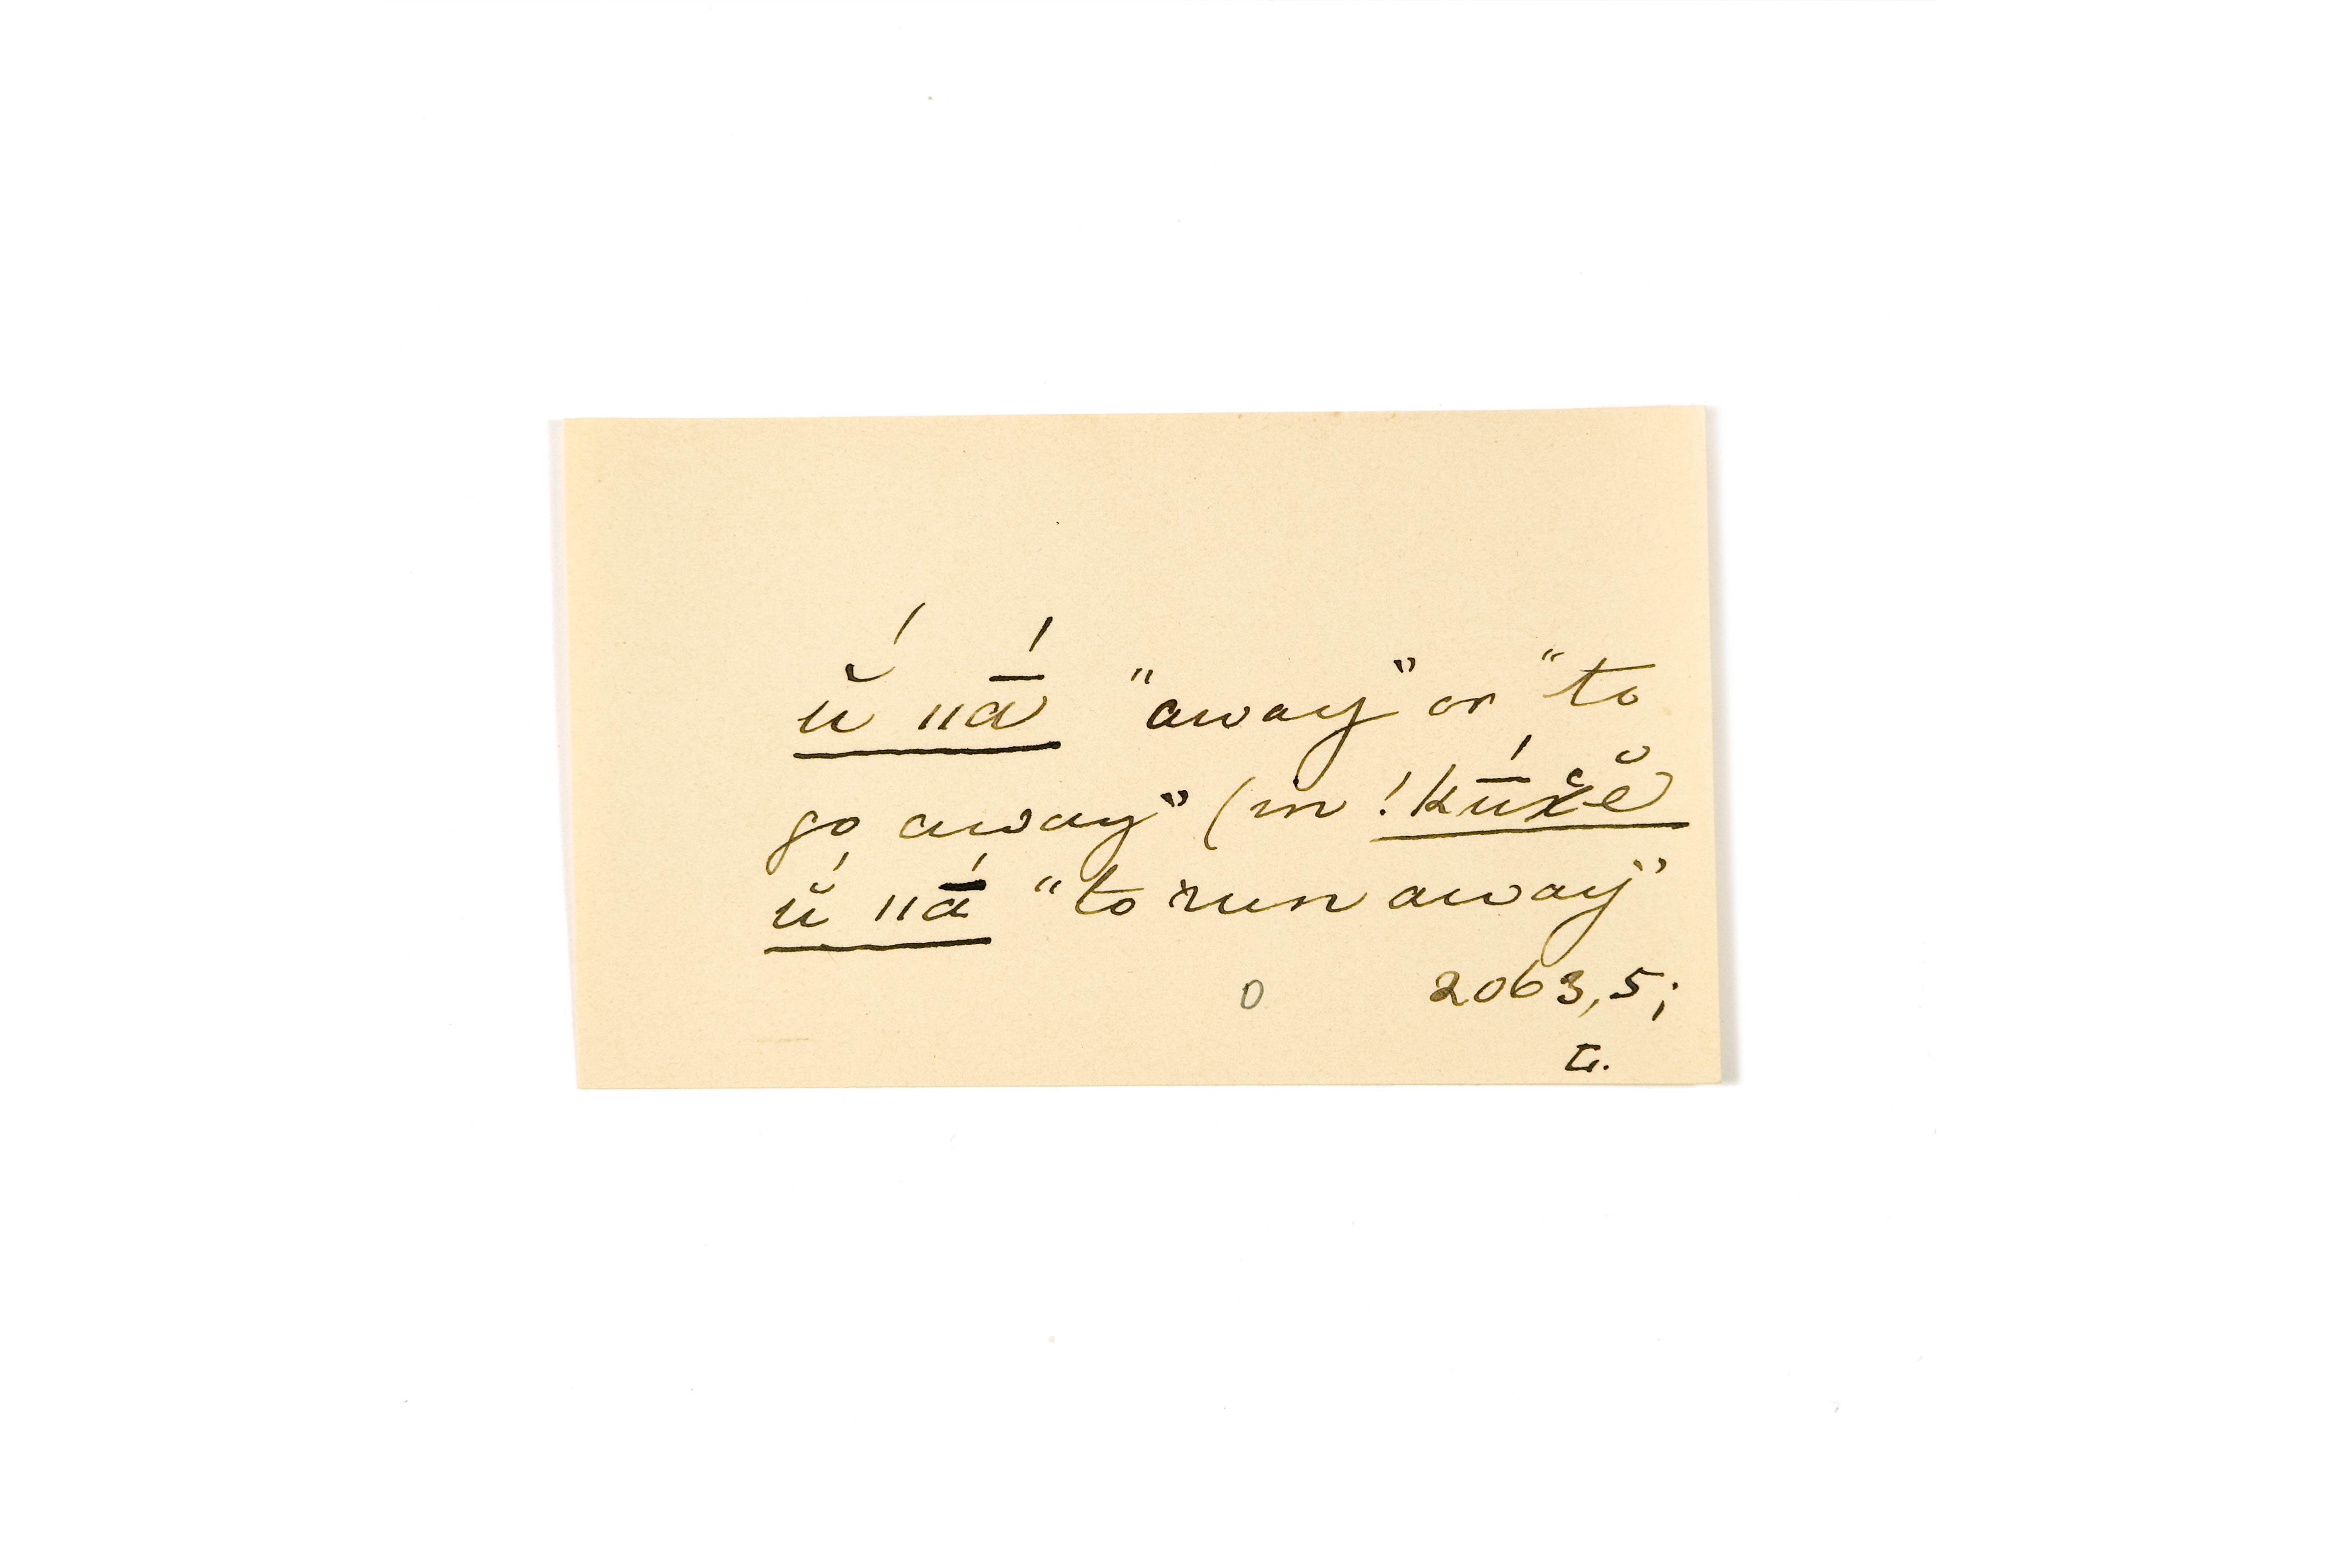 ŭ́ ǁā́ "away" or "to
go away" (in !kū́x̆ĕ
ŭ́ ǁā́ "to run away"
0 2063,5;
L.